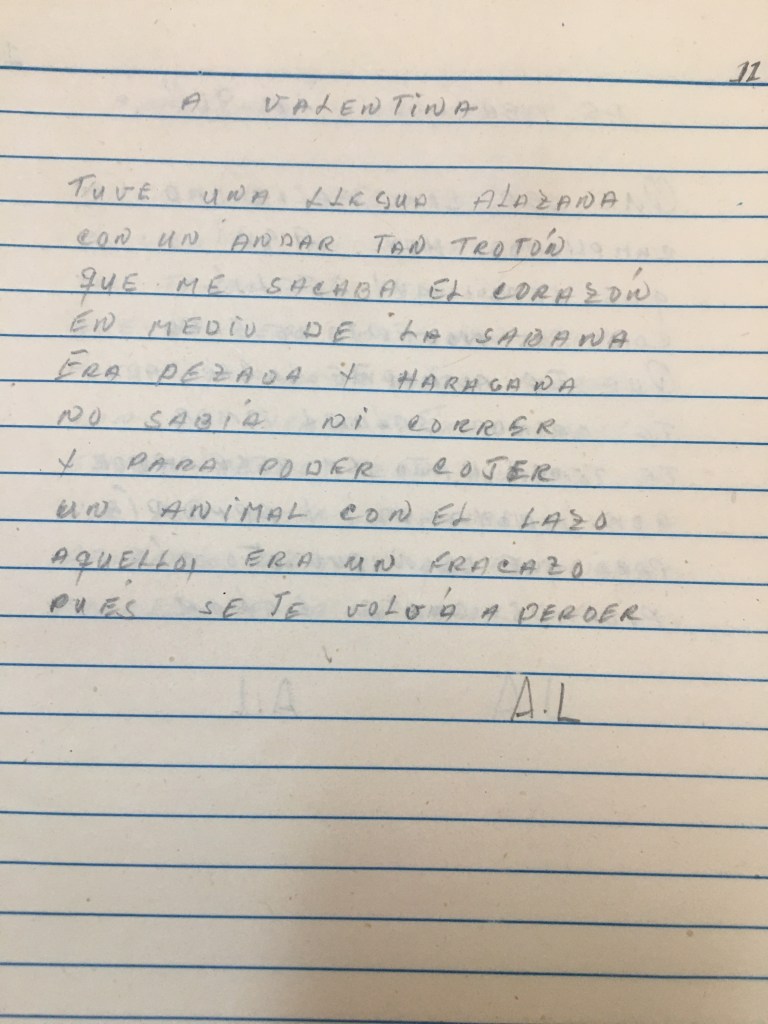 11
A VALENTINA
TUVE UNA LLEGUA ALAZANA
CON UN ANDAR TAN TROTÓN
QUE ME SACABA EL CORAZÓN
EN MEDIO DE LA SABANA
ERA PEZADA Y HARAGANA
NO SABÍA NI CORRER
Y PARA PODER COJER
UN ANIMAL CON EL LAZO
AQUELLO, ERA UN FRACAZO
PUÉS SE TE VOLVÍA A PERDER
A.L